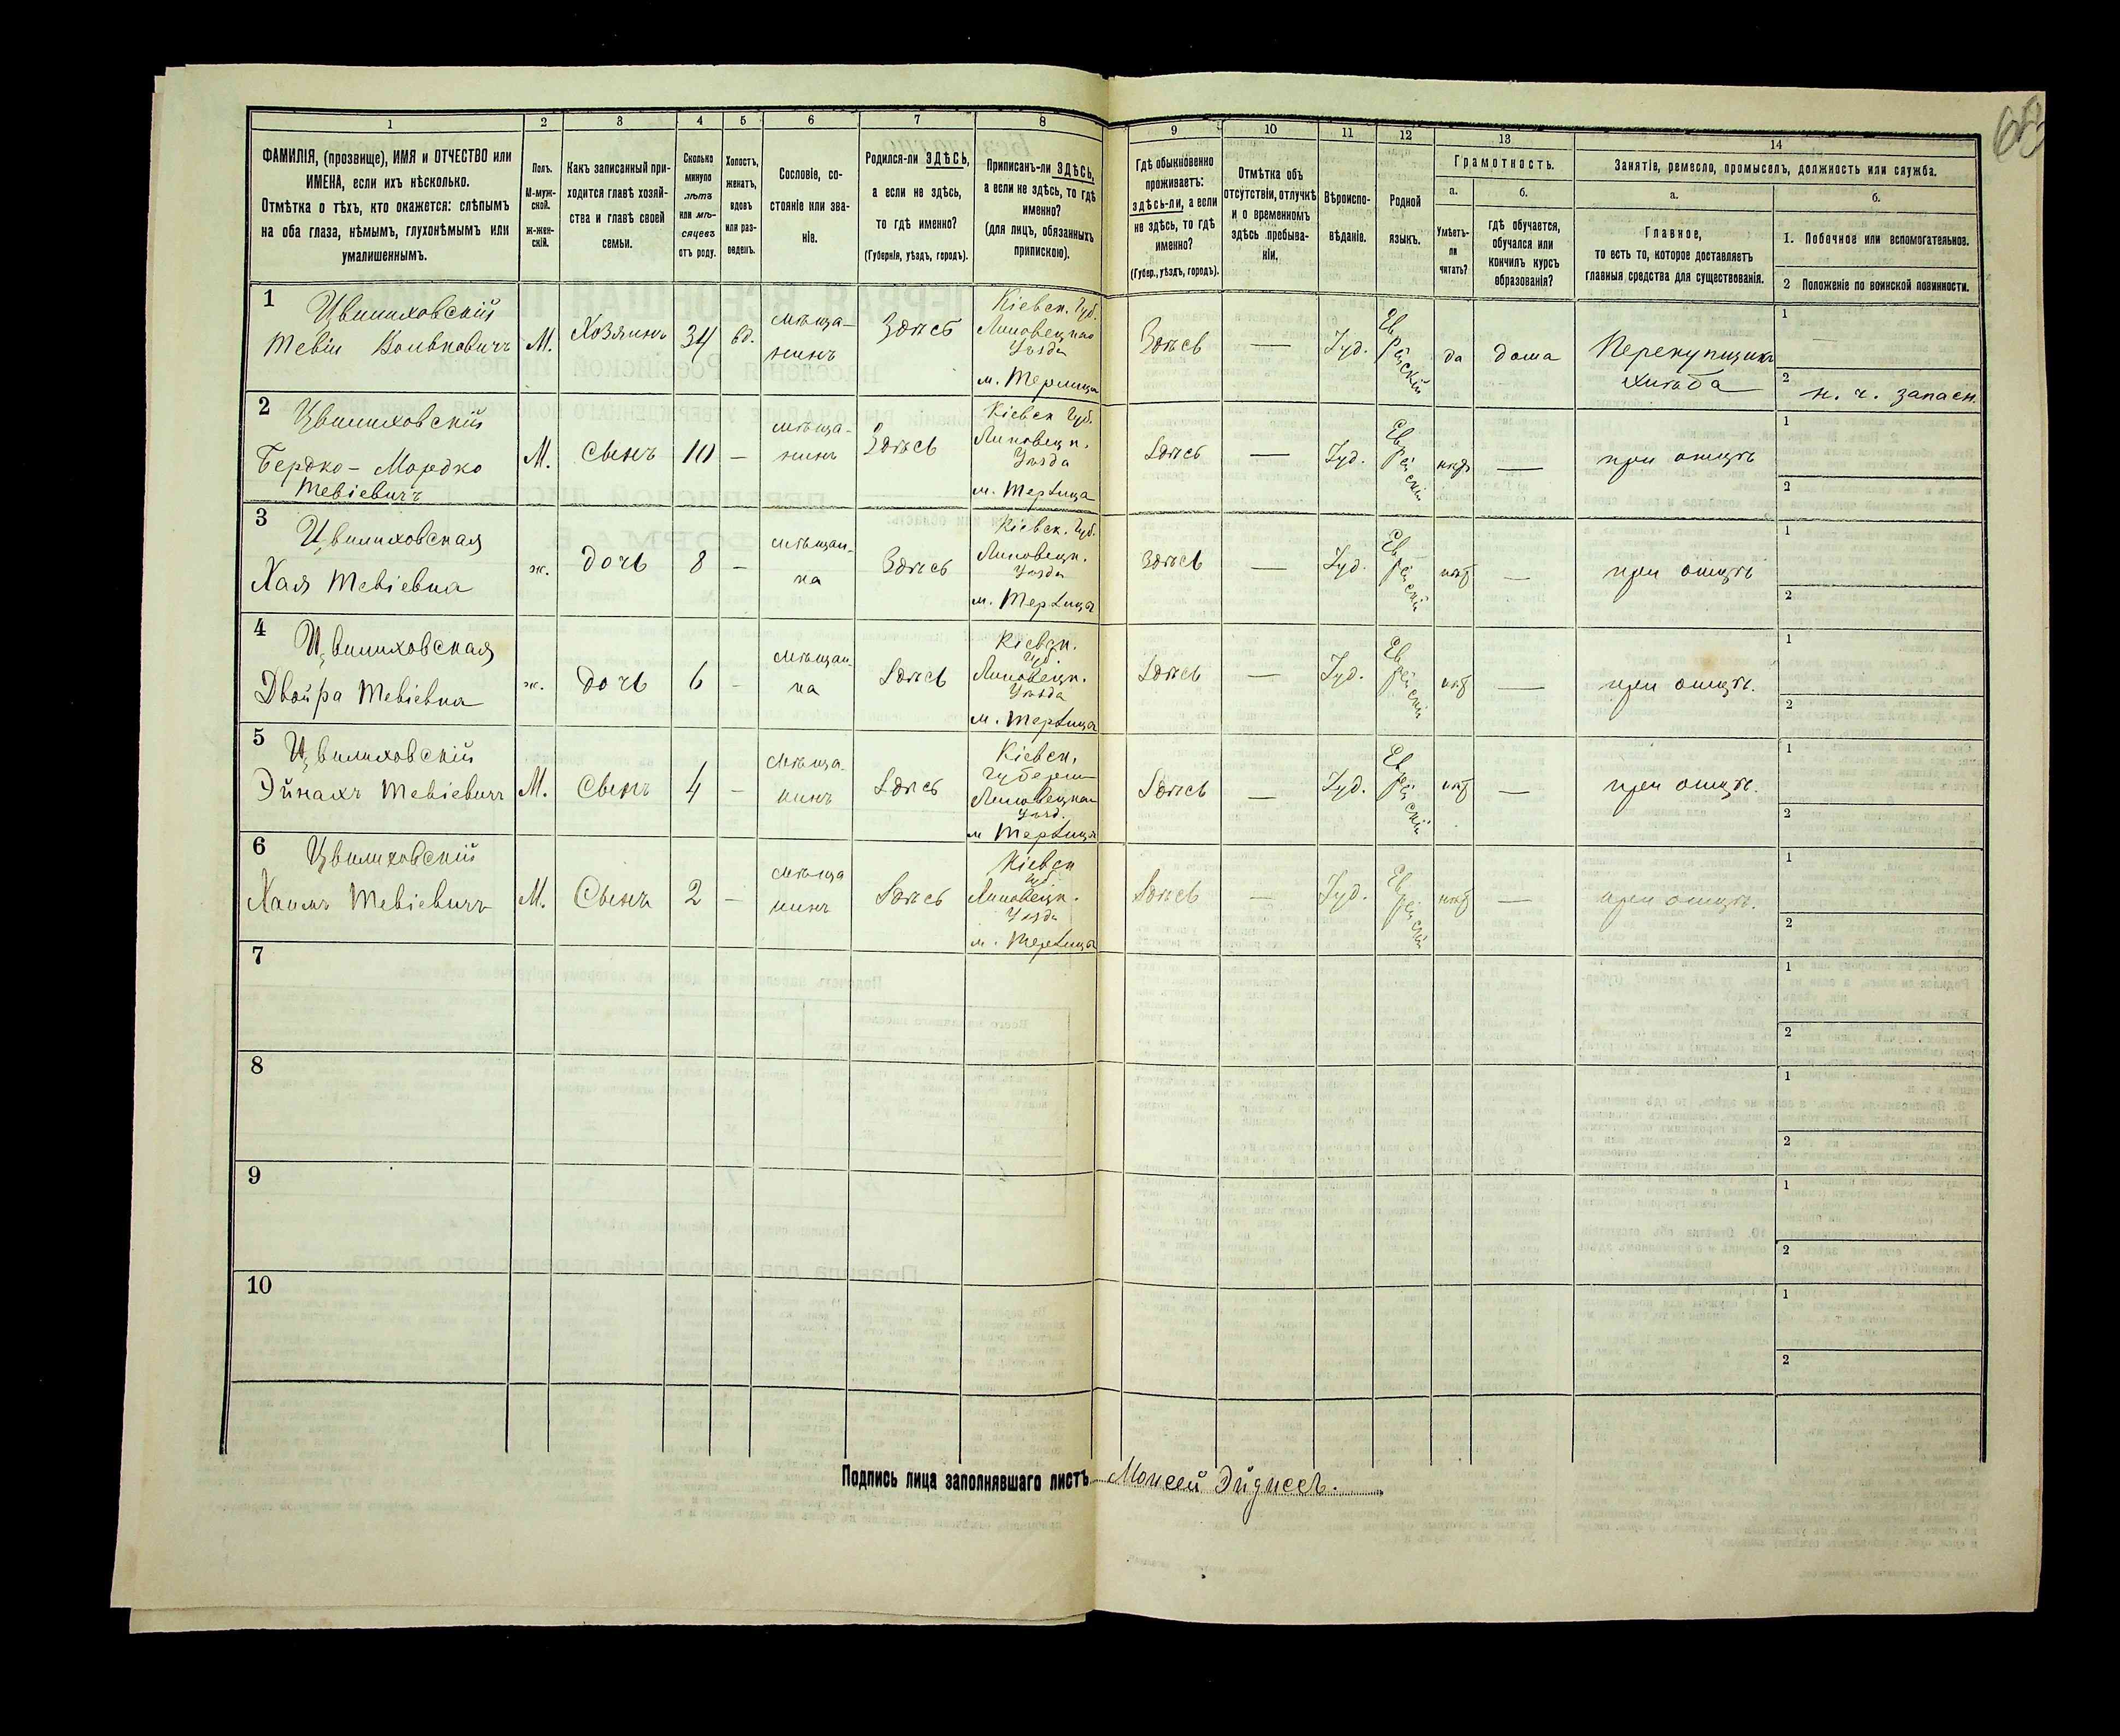 68
1 2 3 4 5 6 7 8 9 10 11 12 13 14
ФАМИЛІЯ, (прозвище), ИМЯ и ОТЧЕСТВО или
ИМЕНА, если ихъ нѣсколько.
Отмѣтка о тѣхъ, кто окажется: слѣпымъ
на оба глаза, нѣмымъ, глухонѣмымъ или
умалишеннымъ.
Полъ.
М-муж-
ской.
ж-жен-
скій.
Какъ записанный при-
ходится главѣ хозяй-
ства и главѣ своей
семьи.
Сколько
минуло
лѣтъ
или мѣ-
сяцевъ
отъ роду.
Холостъ,
женатъ,
вдовъ
или раз-
веденъ.
Сословіе, со-
стояніе или зва-
ніе.
Родился-ли ЗДѢСЬ,
а если не здѣсь,
то гдѣ именно?
(Губернія, уѣздъ, городъ).
Приписанъ-ли ЗДѢСЬ,
а если не здѣсь, то гдѣ
именно?
(для лицъ, обязанныхъ
припискою).
Гдѣ обыкновенно
проживаетъ:
здѣсь-ли, а если
не здѣсь, то гдѣ
именно?
(Губер., уѣздъ, городъ).
Отмѣтка объ
отсутствіи, отлучкѣ
и о временномъ
здѣсь пребыва-
ніи.
Вѣроиспо-
вѣданіе.
Родной
языкъ.
Грамотность.
а.
Умѣетъ-
ли
читать?
б.
гдѣ обучается,
обучался или
кончилъ курсъ
образованія?
Занятіе, ремесло, промыселъ, должность или служба.
а.
Главное,
то есть то, которое доставляетъ
главныя средства для существованія.
б.
1. Побочное или вспомогательное.
2 Положеніе по воинской повинности.
1
Цвилиховскій
Тевій Вольковичъ
М.
Хозяинъ
34
вд.
мѣща-
нинъ
Здѣсь
Кіевск. Губ.
Липовецкаго
Уѣзда
м. Терлица
Здѣсь
—
Іуд.
Ев
рей
скій
да
дома
Перекупщикъ
хлѣба
1
—
2
н. ч. запасн.
2
Цвилиховскій
Бердко-Мордко
Тевіевичъ
М.
Сынъ
10
—
мѣща-
нинъ
Здѣсь
Кіевск Губ.
Липовецк.
Уѣзда
м. Терлица
Здѣсь
—
Іуд.
Ев
рей
скій
нѣт
—
при отцѣ
1
2
3
Цвилиховская
Хая Тевіевна
ж.
дочь
8
—
мѣщан-
ка
Здѣсь
Кіевск. Губ.
Липовецк.
Уѣзда
м. Терлица
Здѣсь
—
Іуд.
Ев
рей
скій
нѣт
—
при отцѣ
1
2
4
Цвилиховская
Двойра Тевіевна
ж.
дочь
6
—
мѣщан-
ка
Здѣсь
Кіевск.
Губ.
Липовецк.
Уѣзда
м. Терлица
Здѣсь
—
Іуд.
Ев
рей
скій
нѣт
—
при отцѣ.
1
2
5
Цвилиховскій
Эйнахъ Тевіевичъ
М.
Сынъ
4
—
мѣща-
нинъ
Здѣсь
Кіевск.
Губерни
Липовецкаго
Уѣзд.
м Терлица
Здѣсь
—
Іуд.
Ев
рей
скій
нѣт
—
при отцѣ.
1
2
6
Цвилиховскій
Хаимъ Тевіевичъ
М.
Сынъ
2
—
мѣща
нинъ
Здѣсь
Кіевск
Губ
Липовецк.
Уѣзда
м. Терлица
Здѣсь
—
Іуд.
Ев
рей
скій
нѣт
—
при отцѣ.
1
2
7
1
2
8
1
2
9
1
2
10
1
2
Подпись лица заполнявшаго листъ Моисей Эйдисъ.